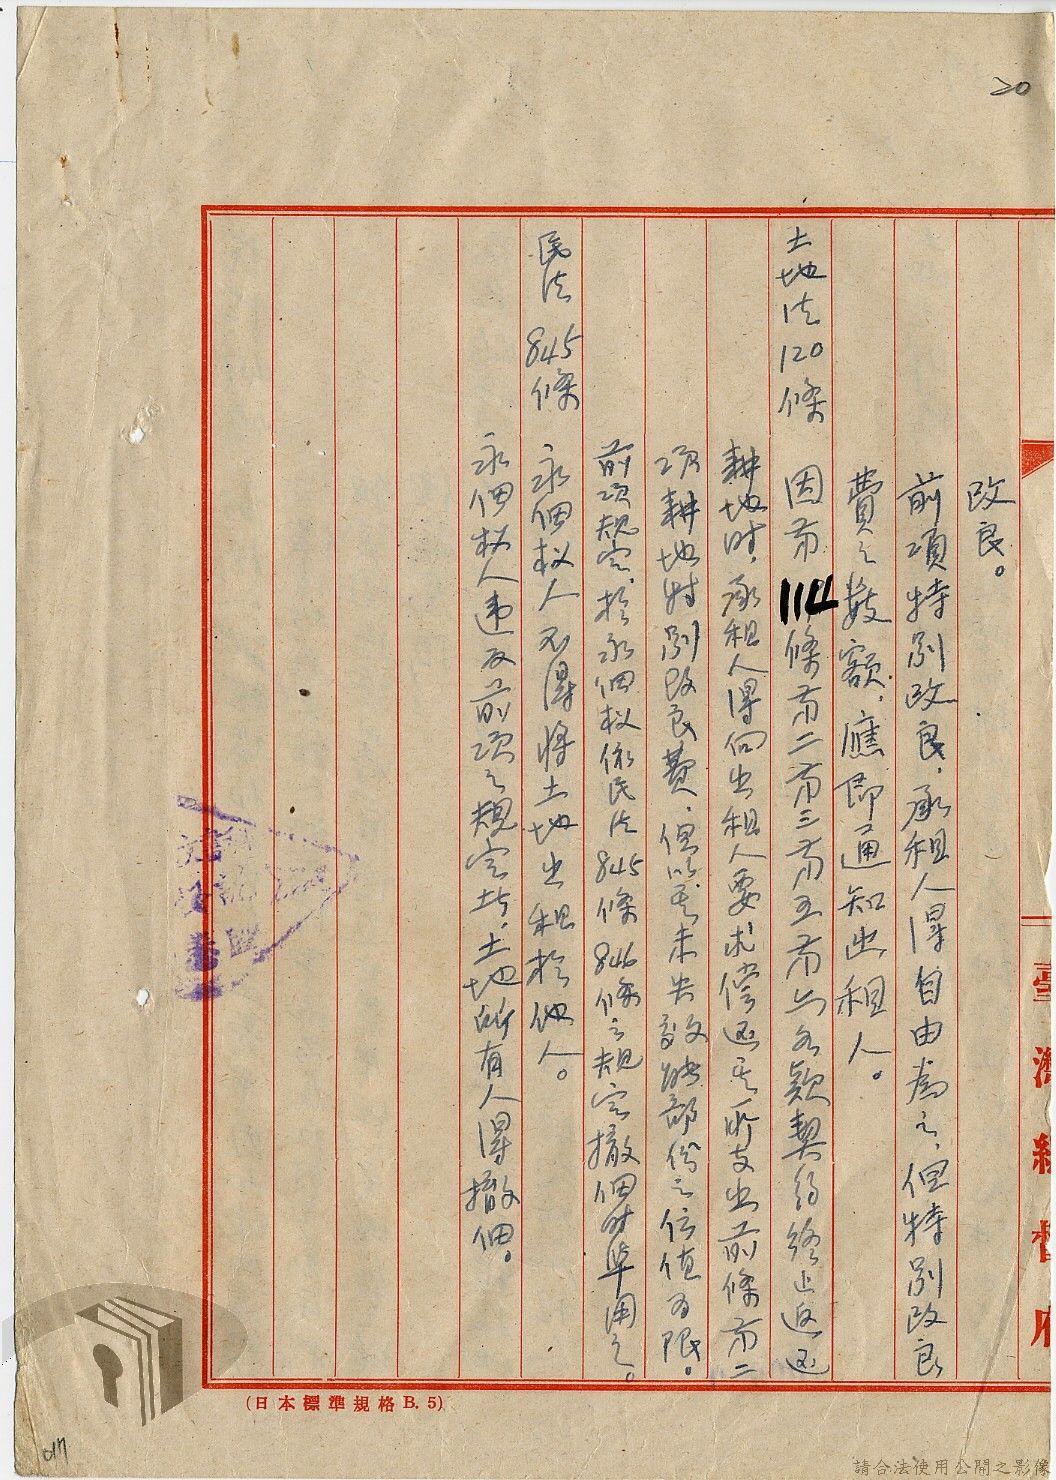 20
改良。
前項特別改良，承租人得自由為之，但特別改良
費之数額，應即通知出租人。
土地法120條 因第114條第二第三第五第六各款契約終止返还
耕地时，承租人得向出租人要求償还其所支出前條第二
項耕地特別改良費，但以其未失效能部份之价值为限。
前項規定，於永佃权依民法845條846條之規定撤佃时準用之。
民法845條 永佃权人不得将土地出租於他人。
永佃权人违反前項之規定者，土地所有人得撤佃。
臺灣總督府
(日本標準規格B.5)
017
請合法使用公開之影像